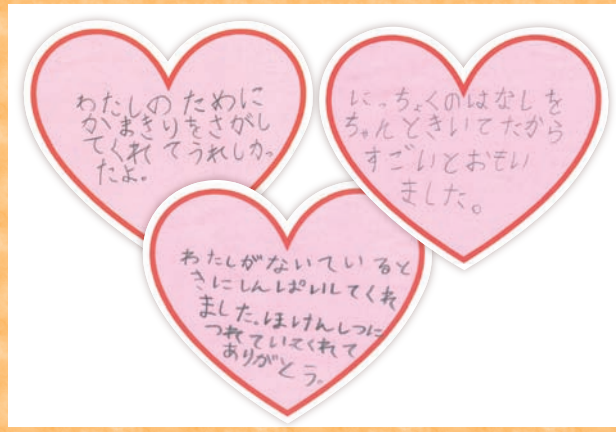 わたしのために
かまきりをさがし
てくれてうれしかっ
たよ。
にっちょくのはなしを
ちゃんときいてたから
すごいとおもい
ました。
わたしがないていると
きにしんぱいしてくれ
ました。ほけんしつに
つれていてくれて
ありがとう。